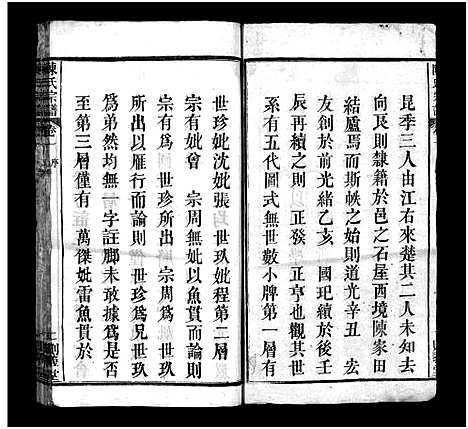 昆季三人由江右來楚其二人未知去
向艮則隸籍於邑之石屋西境陳家田
結廬焉而斯帙之始則道光辛丑　宏
友創於前光緒乙亥　國玘續於後壬
辰再續之則　正發　正亨也觀其世
系有五代圖式無世數小牌第一層有
世珍妣沈妣張　世玖妣程第二層有
宗有妣會　宗周無妣以魚貫而論則
宗有為　世珍所出　宗周為　世玖
所出以雁行而論則　世珍為兄世玖
為弟然均無一字註腳未敢據為是否
至第三層僅有　萬傑妣雷魚貫於
陳氏宗譜
卷
序